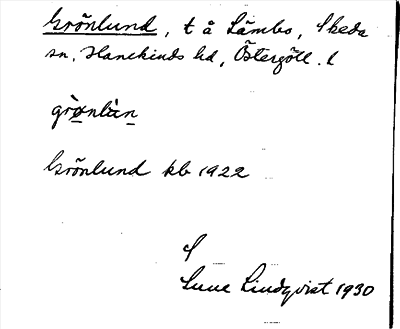 Grönlund, t å Lämbo, Skeda
sn, Hanekinds hd, Östergötl. l
grø̀nlùn
Grönlund kb 1922
Sune Lindqvist 1930